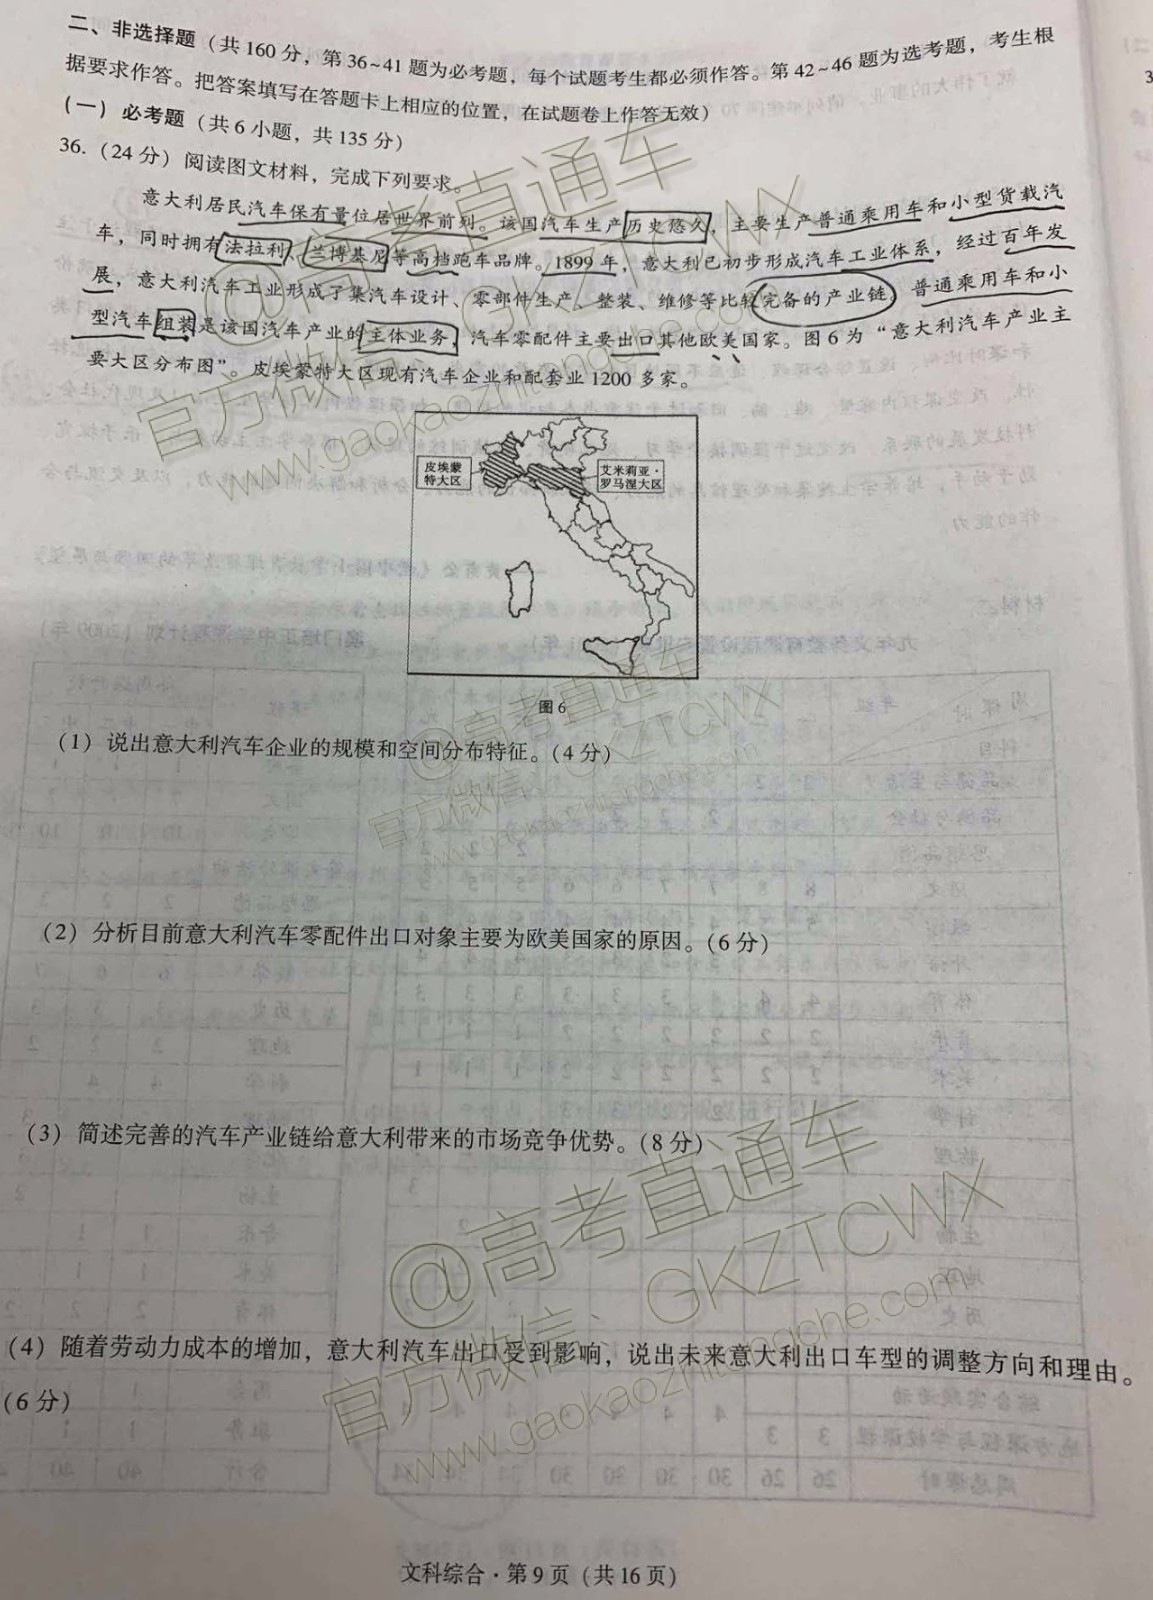 二、非选择题（共160分，第36~41题为必考题，每个试题考生都必须作答。第42~46题为选考题，考生根
据要求作答。把答案填写在答题卡上相应的位置，在试题卷上作答无效）
（一）必考题（共6小题，共135分）
36.（24分）阅读图文材料，完成下列要求。
意大利居民汽车保有量位居世界前列。该国汽车生产历史悠久，主要生产普通乘用车和小型货载汽
车，同时拥有法拉利、兰博基尼等高档跑车品牌。1899年，意大利已初步形成汽车工业体系，经过百年发
展，意大利汽车工业形成了集汽车设计、零部件生产、整装、维修等比较完备的产业链。普通乘用车和小
型汽车组装是该国汽车产业的主体业务，汽车零配件主要出口其他欧美国家。图6为“意大利汽车产业主
要大区分布图”。皮埃蒙特大区现有汽车企业和配套业1200多家。
皮埃蒙
特大区
艾米莉亚·
罗马涅大区
图6
（1）说出意大利汽车企业的规模和空间分布特征。（4分）
（2）分析目前意大利汽车零配件出口对象主要为欧美国家的原因。（6分）
（3）简述完善的汽车产业链给意大利带来的市场竞争优势。（8分）
（4）随着劳动力成本的增加，意大利汽车出口受到影响，说出未来意大利出口车型的调整方向和理由。
（6分）
文科综合·第9页（共16页）
@高考直通车
官方微信：GKZTCWX
www.gaokaozhitongche.com
@高考直通车
官方微信：GKZTCWX
@高考直通车
官方微信：GKZTCWX
www.gaokaozhitongche.com